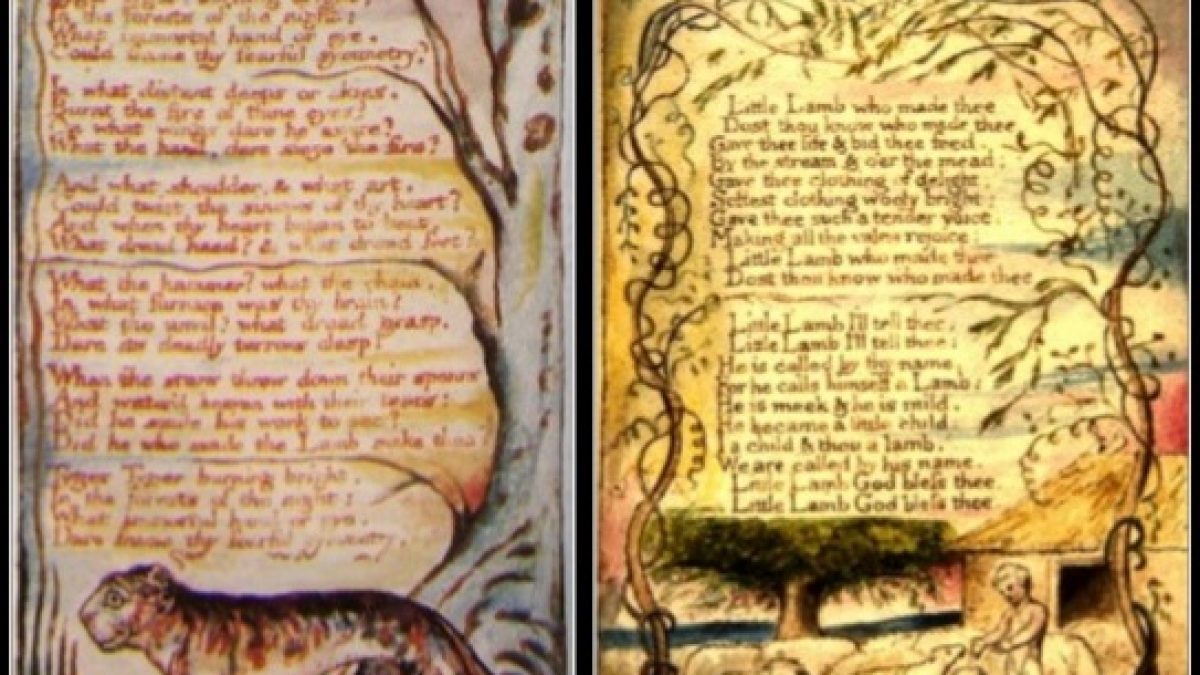 In the forests of the night:
What immortal hand or eye.
Could frame thy fearful symmetry?
In what distant deeps or skies.
Burnt the fire of thine eyes?
On what wings dare he aspire?
What the hand, dare sieze the fire?
And what shoulder, & what art.
Could twist the sinews of thy heart?
And when thy heart began to beat,
What dread hand? & what dread feet?
What the hammer? what the chain.
In what furnace was thy brain?
What the anvil? what dread grasp.
Dare its deadly terrors clasp!
When the stars threw down their spears
And water'd heaven with their tears:
Did he smile his work to see?
Did he who made the Lamb make thee?
Tyger Tyger burning bright.
In the forests of the night:
What immortal hand or eye.
Dare frame thy fearful symmetry.
Little Lamb who made thee
Dost thou know who made thee
Gave thee life & bid thee feed.
By the stream & o'er the mead;
Gave thee clothing of delight.
Softest clothing wooly bright;
Gave thee such a tender voice.
Making all the vales rejoice:
Little Lamb who made thee
Dost thou know who made thee
Little Lamb I'll tell thee,
Little Lamb I'll tell thee;
He is called by thy name,
For he calls himself a Lamb:
He is meek & he is mild.
He became a little child:
a child & thou a lamb.
We are called by his name.
Little Lamb God bless thee.
Little Lamb God bless thee.